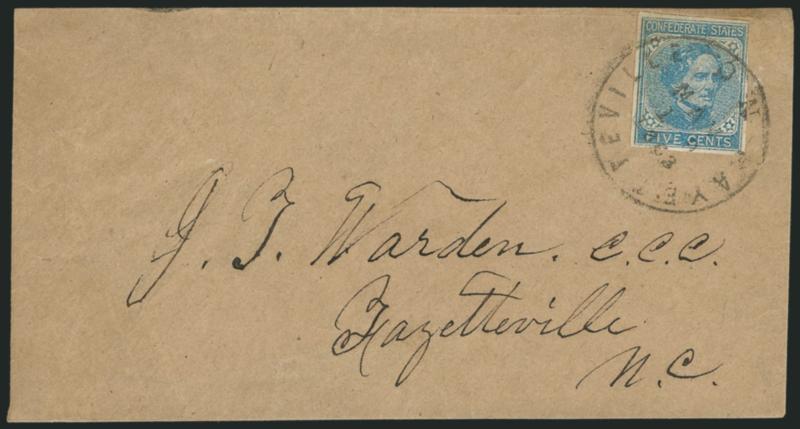 CONFEDERATE STATES
FIVE CENTS
FAYETTEVILLE
MAY
J. T. Warden. c.c.c.
Fayetteville
N.C.